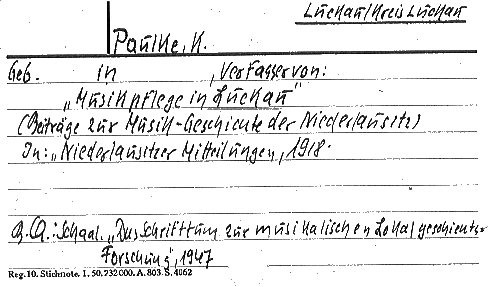 Luckau/Kreis Luckau
Paulke, K.
Geb. in , Verfasser von:
„Musikpflege in Luckau"
(Beiträge zur Musik-Geschichte der Niederlausitz)
In: „Niederlausitzer Mitteilungen, 1918.
Schaal. „Das Schrifttum zur musikalischen Lokalgeschichts-
Forschung", 1947
Reg.10. Stichnote. 1. 50.732000. A. 803. S. 4062